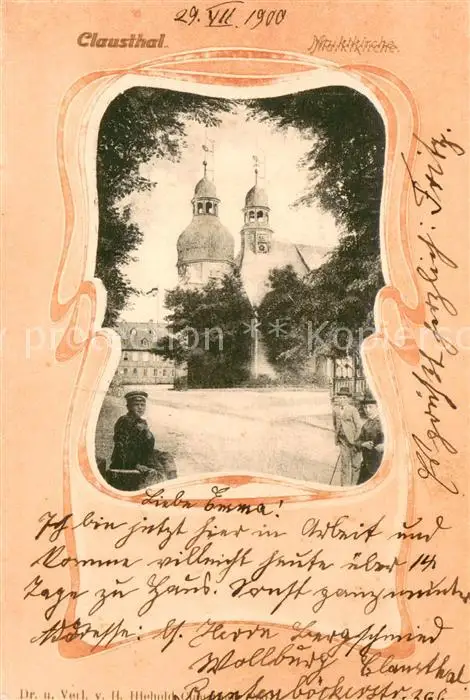 29. VII. 1900
Clausthal.
Marktkirche.
Liebe Emma!
Ich bin jetzt hier in Arbeit und
komme vielleicht heute über 14
Tage zu Haus. Sonst ganz munter
Adresse: bf. Herde Bergschmied
Wollburg Clausthal
Es grüßt herzlich: Fritz.
Dr. u. Verl. v. H.